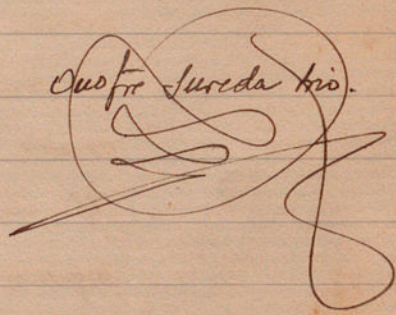 Onofre Sureda Srio.